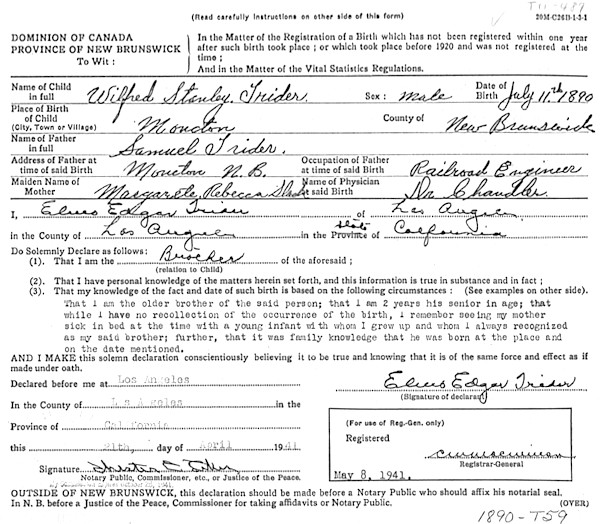 T11-489
(Read carefully Instructions on other side of this form) 20M-C26B-1-3-1
DOMINION OF CANADA
PROVINCE OF NEW BRUNSWICK
To Wit :
In the Matter of the Registration of a Birth which has not been registered within one year
after such birth took place ; or which took place before 1920 and was not registered at the
time ;
And in the Matter of the Vital Statistics Regulations.
Name of Child in full Wilfred Stanley Trider. Sex : male Date of Birth July 11th 1890
Place of Birth of Child (City, Town or Village) Moncton County of New Brunswick
Name of Father in full Samuel Trider.
Address of Father at time of said Birth Moncton N. B. Occupation of Father at time of said Birth Railroad Engineer
Maiden Name of Mother Margarete Rebecca Name of Physician at said Birth Dr Chandler.
I, Edgar Trider of Los Angeles
in the County of Los Angeles in the State Province of California
Do Solemnly Declare as follows :
(1). That I am the Brother of the aforesaid ;
(relation to Child)
(2). That I have personal knowledge of the matters herein set forth, and this information is true in substance and in fact ;
(3). That my knowledge of the fact and date of such birth is based on the following circumstances : (See examples on other side).
That I am the older brother of the said person; that I am 2 years his senior in age; that
while I have no recollection of the occurrence of the birth, I remember seeing my mother
sick in bed at the time with a young infant with whom I grew up and whom I always recognized
as my said brother; further, that it was family knowledge that he was born at the place and
on the date mentioned.
AND I MAKE this solemn declaration conscientiously believing it to be true and knowing that it is of the same force and effect as if
made under oath.
Declared before me at Los Angeles
Edgar Trider
(Signature of declarant)
In the County of Los Angeles in the
Province of California
this day of April 1941
Signature
Notary Public, Commissioner, etc., or Justice of the Peace.
(For use of Reg.-Gen. only)
Registered
Registrar-General
May 8, 1941.
OUTSIDE OF NEW BRUNSWICK, this declaration should be made before a Notary Public who should affix his notarial seal.
In N. B. before a Justice of the Peace, Commissioner for taking affidavits or Notary Public. (OVER)
1890-T59